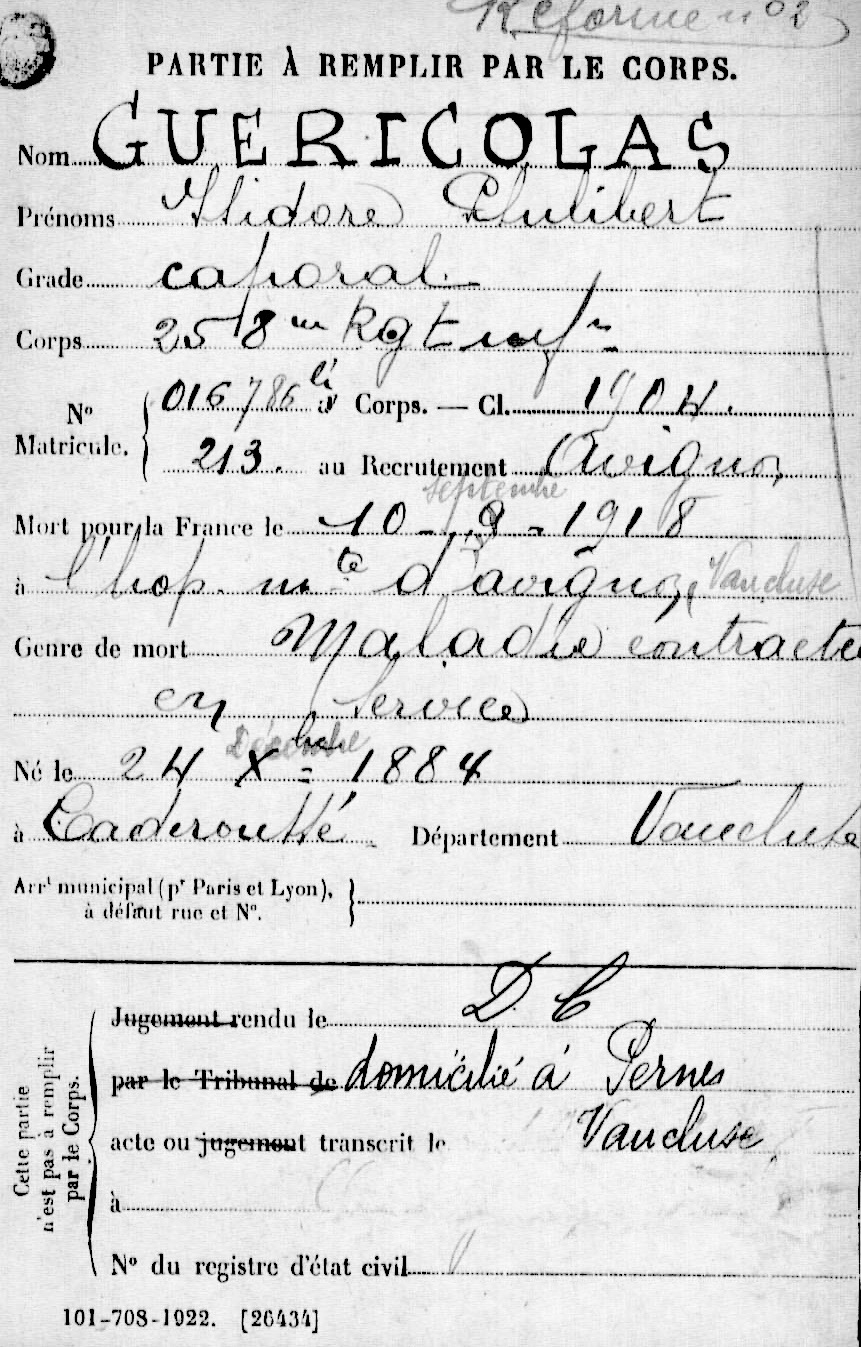 Réforme n° 2
PARTIE À REMPLIR PAR LE CORPS.
Nom GUERICOLAS
Prénoms Isidore Philibert
Grade caporal
Corps 258 me Rgt infie
016786 li
à Corps. — Cl. 1904.
N°
Matricule.
213. au Recrutement Avignon
septembre
Mort pour la France le 10 - 9 - 1918
à l'hop. mte d'avignon, Vaucluse
Genre de mort Maladie contractée
en service
Décembre
Né le 24 Xbre 1884
à Caderousse Département Vaucluse
Arrt municipal (pr Paris et Lyon),
à défaut rue et N°.
D C
Jugement rendu le
par le Tribunal de domicilié à Pernes
acte ou jugement transcrit le Vaucluse
à
N° du registre d'état civil
Cette partie
n'est pas à remplir
par le Corps.
101-708-1922. [26434]